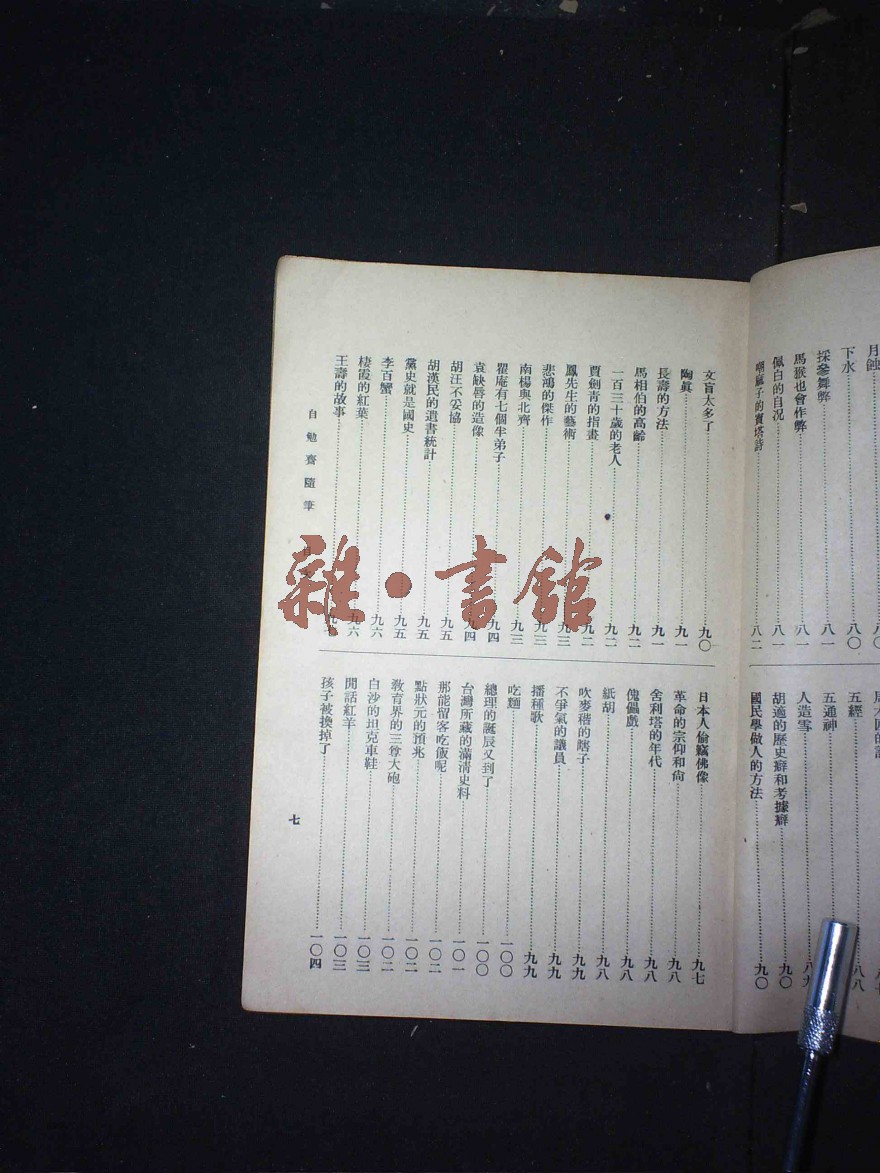 下水……八〇
採參舞弊……八一
馬猴也會作弊……八一
佩白的自况……八一
嘲麻子的寶塔詩……八二
五經……八八
五通神
人造雪……八九
胡適的歷史癖和考據癖……九〇
國民學做人的方法……九〇
文盲太多了……九〇
陶眞……九一
長壽的方法……九一
馬相伯的高齡……九二
一百三十歲的老人……九二
賈劍青的指畫……九二
鳳先生的藝術……九三
悲鴻的傑作……九三
南楊與北齊……九三
瞿庵有七個半弟子……九四
袁缺唇的造像……九四
胡汪不妥協……九五
胡漢民的遺書統計……九五
黨史就是國史……九五
李百蟹……九六
棲霞的紅葉……九六
王壽的故事
日本人偷竊佛像……九七
革命的宗仰和尙……九八
舍利塔的年代……九八
傀儡戲……九八
紙胡……九八
吹麥稭的瞎子……九九
不爭氣的議員……九九
播種歌……九九
吃麵……一〇〇
總理的誕辰又到了……一〇〇
台灣所藏的滿清史料……一〇一
那能留客吃飯呢……一〇二
點狀元的預兆……一〇二
敎育界的三尊大砲……一〇二
白沙的坦克車鞋……一〇三
閒話紅羊……一〇三
孩子被換掉了……一〇四
自勉齋隨筆
七
雜·書館